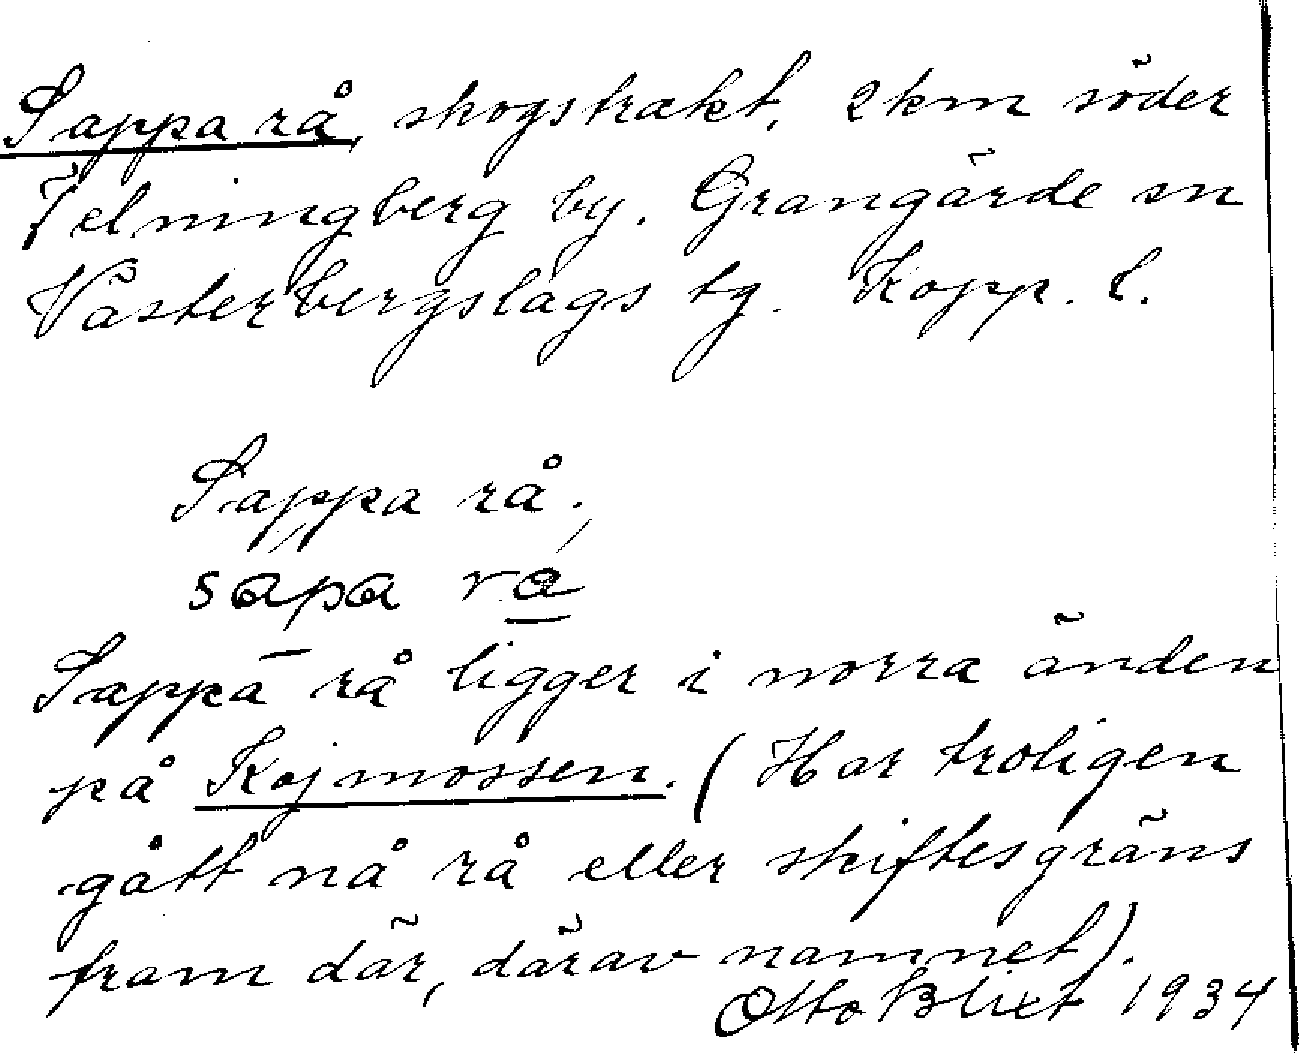 Sappa rå, skogstrakt, 2 km söder
Telningberg by. Grangärde sn
Västerbergslags tg. Kopp. l.
Sappa rå;
sapa rå
Sappa rå ligger i norra änden
på Kojmossen. (Har troligen
gått nå rå eller skiftesgräns
fram där, därav namnet).
Otto Blixt 1934